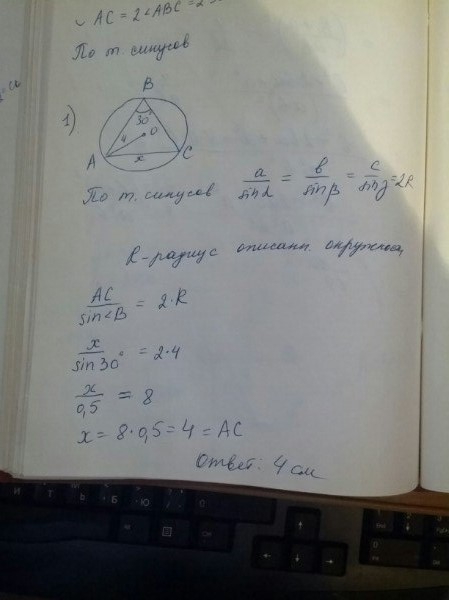 ∪ AC = 2∠ABC = 2·3
По т. синусов
1)
B
30°
4
O
A
x
C
По т. синусов a/sinα = b/sinβ = c/sinγ = 2R
R-радиус описанн. окружности
AC/sin∠B = 2·R
x/sin30° = 2·4
x/0,5 = 8
x = 8·0,5 = 4 = AC
Ответ: 4 см